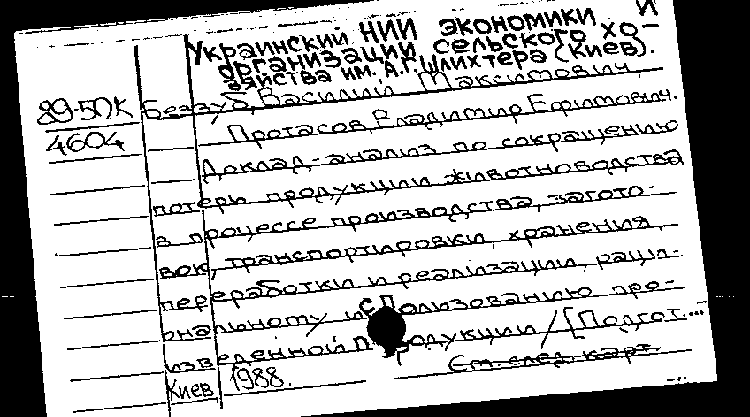 Украинский НИИ экономики и
организации сельского хо-
зяйства им. А.Г. Шлихтера (Киев).
89-50К Беззуб, Василий Максимович,
4604 Протасов, Владимир Ефимович.
Доклад-анализ по сокращению
потери продукции животноводства
в процессе производства, загото-
вок, транспортировки, хранения,
переработки и реализации, раци-
ональному использованию про-
изведенной продукции / [Подгот...
Киев, 1988. См. след. карт.